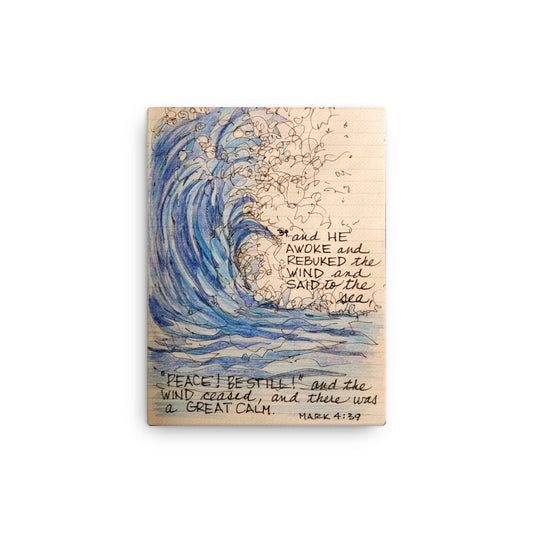 39 and HE
AWOKE and
REBUKED the
WIND and
SAID to the
sea,
"PEACE! BE STILL!" and the
WIND ceased, and there was
a GREAT CALM.
MARK 4:39